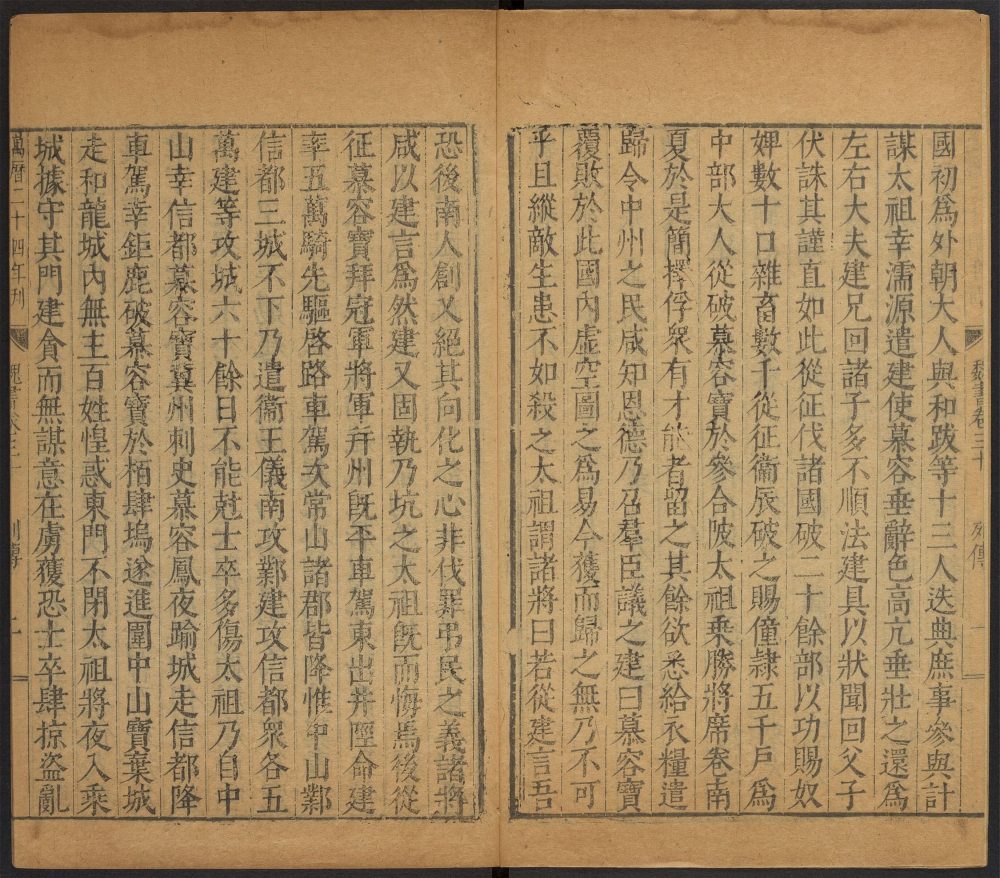 魏書卷三十 列傳 一
國初爲外朝大人與和跋等十三人迭典庶事參與計
謀太祖幸濡源遣建使慕容垂辭色高亢垂壯之還爲
左右大夫建兄回諸子多不順法建具以狀聞回父子
伏誅其謹直如此從征伐諸國破二十餘部以功賜奴
婢數十口雜畜數千從征衞辰破之賜僮隸五千戶爲
中部大人從破慕容寶於參合陂太祖乘勝將席卷南
夏於是簡擇俘衆有才能者留之其餘欲悉給衣糧遣
歸令中州之民咸知恩德乃召羣臣議之建曰慕容寶
覆敗於此國內虛空圖之爲易今獲而歸之無乃不可
乎且縱敵生患不如殺之太祖謂諸將曰若從建言吾
恐後南人創乂絕其向化之心非伐罪弔民之義諸將
咸以建言爲然建又固執乃坑之太祖既而悔焉後從
征慕容寶拜冠軍將軍幷州既平車駕東出井陘命建
率五萬騎先驅啓路車駕次常山諸郡皆降惟中山鄴
信都三城不下乃遣衞王儀南攻鄴建攻信都衆各五
萬建等攻城六十餘日不能尅士卒多傷太祖乃自中
山幸信都慕容寶冀州刺史慕容鳳夜踰城走信都降
車駕幸鉅鹿破慕容寶於栢肆塢遂進圍中山寶棄城
走和龍城內無主百姓惶惑東門不閉太祖將夜入乘
城據守其門建貪而無謀意在虜獲恐士卒肆掠盜亂
萬曆二十四年刊 魏書卷三十 列傳 二